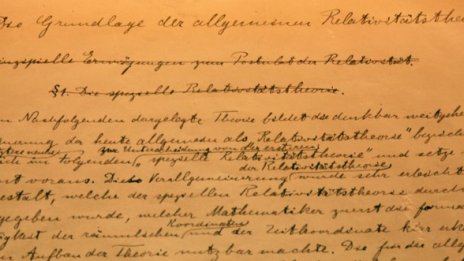 Die Grundlage der allgemeinen Relativitätstheo
Prinzipielle Erwägungen zum Postulat der Relativität.
§1. Die spezielle Relativitätstheorie.
Nachfolgenden dargelegte Theorie bildet die denkbar weitgehe
der heute allgemein als „Relativitätstheorie" bezeich
zur Unterscheidung von der ersteren
im folgenden „spezielle Relativitätstheorie" und setze
der Relativitätstheorie
voraus. Die Verallgemeinerung wurde sehr erleicht
estalt, welche der speziellen Relativitätstheorie durch
gegeben wurde, welcher Mathematiker zuerst die forma
Koordinaten
igkeit der räumlichen und der Zeitkoordinate
Aufbau der Theorie nutzbar machte. Die für die allg